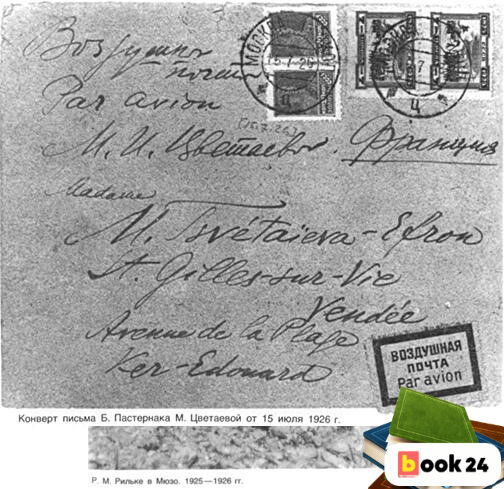 Воздушной
почтой
Par avion
МОСКВА
15.7.26
Ц
7
Ц
(15.7.26)
М. И. Цветаевой. Франция
Madame
M. Tsvétaieva-Efron
St. Gilles-sur-Vie
Vendée
Avenue de la Plage
Ker-Edouard
ВОЗДУШНАЯ
ПОЧТА
Par avion
Конверт письма Б. Пастернака М. Цветаевой от 15 июля 1926 г.
Р. М. Рильке в Мюзо. 1925—1926 гг.
book 24